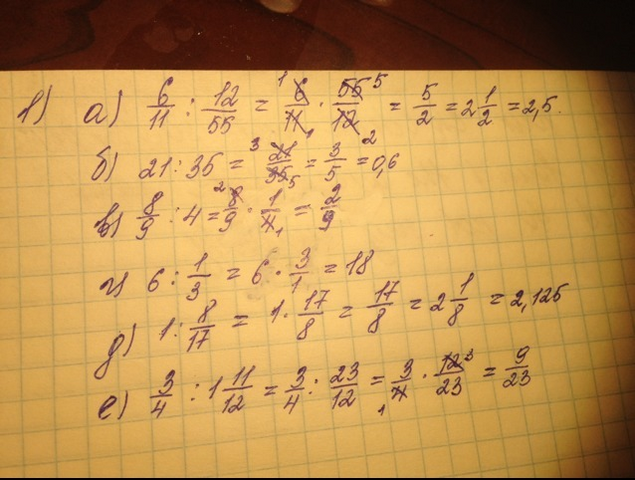 1) а) 6/11 : 12/55 = 6/11 · 55/12 = 5/2 = 2 1/2 = 2,5.
б) 21 : 35 = 21/35 = 3/5 = 0,6
в) 8/9 : 4 = 8/9 · 1/4 = 2/9
г) 6 : 1/3 = 6 · 3/1 = 18
д) 1 : 8/17 = 1 · 17/8 = 17/8 = 2 1/8 = 2,125
е) 3/4 : 1 11/12 = 3/4 : 23/12 = 3/4 · 12/23 = 9/23